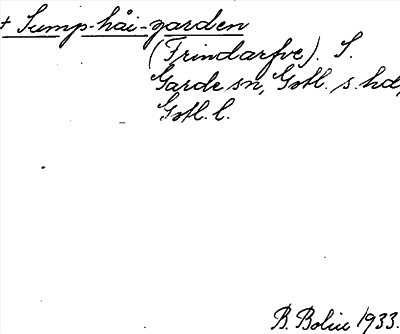 + Sump-håi-garden
(Frindarfve). S.
Garde sn, Gotl. s. hd,
Gotl. l.
B. Bolin 1933.